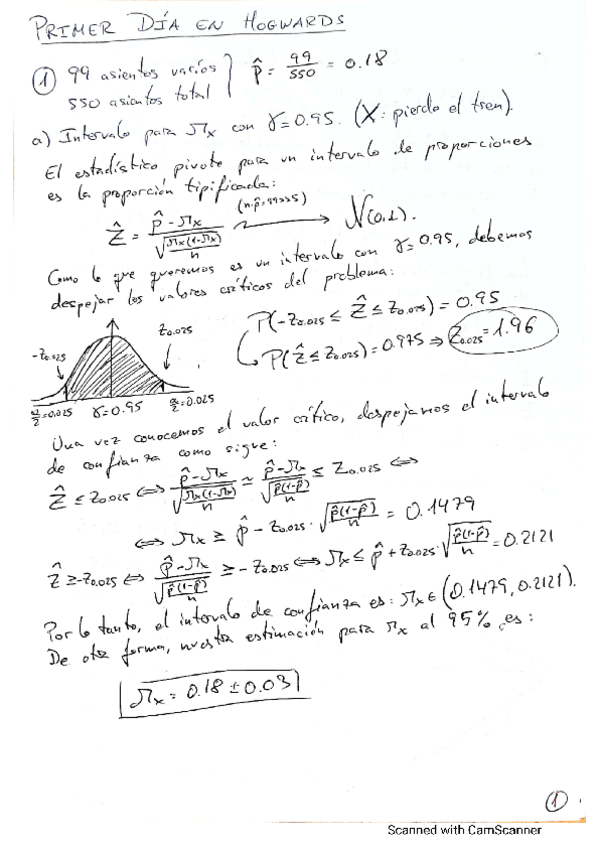 PRIMER DÍA EN HOGWARDS
① 99 asientos vacíos
550 asientos total
p̂ = 99/550 = 0.18
a) Intervalo para πx con γ=0.95. (X: pierde el tren).
El estadístico pivote para un intervalo de proporciones
es la proporción tipificada:
Ẑ = (p̂ - πx)/√(πx(1-πx)/n) (n·p̂=99>>5) → N(0,1).
Como lo que queremos es un intervalo con γ=0.95, debemos
despejar los valores críticos del problema:
P(-Z0.025 ≤ Ẑ ≤ Z0.025) = 0.95
P(Ẑ ≤ Z0.025) = 0.975 ⇒ Z0.025 = 1.96
-Z0.025 Z0.025
α/2=0.025 γ=0.95 α/2=0.025
Una vez conocemos el valor crítico, despejamos el intervalo
de confianza como sigue:
Ẑ ≤ Z0.025 ⇔ (p̂ - πx)/√(πx(1-πx)/n) ≃ (p̂ - πx)/√(p̂(1-p̂)/n) ≤ Z0.025 ⇔
⇔ πx ≥ p̂ - Z0.025 · √(p̂(1-p̂)/n) = 0.1479
Ẑ ≥ -Z0.025 ⇔ (p̂ - πx)/√(p̂(1-p̂)/n) ≥ -Z0.025 ⇔ πx ≤ p̂ + Z0.025 · √(p̂(1-p̂)/n) = 0.2121
Por lo tanto, el intervalo de confianza es: πx ∈ (0.1479, 0.2121).
De otra forma, nuestra estimación para πx al 95% es:
πx = 0.18 ± 0.03
①
Scanned with CamScanner